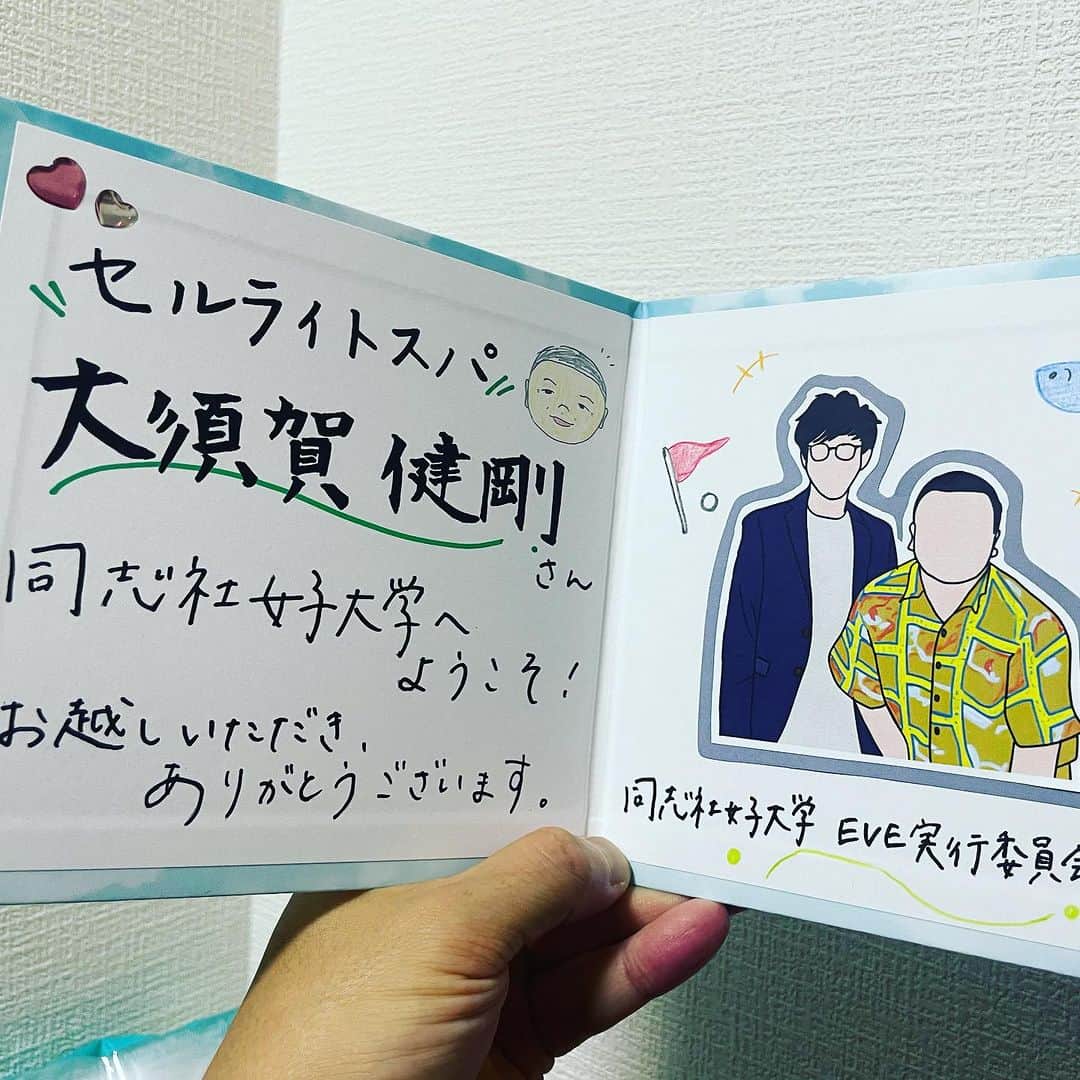 セルライトスパ
大須賀 健剛
さん
同志社女子大学へ
ようこそ！
お越しいただき、
ありがとうございます。
同志社女子大学 EVE実行委員会